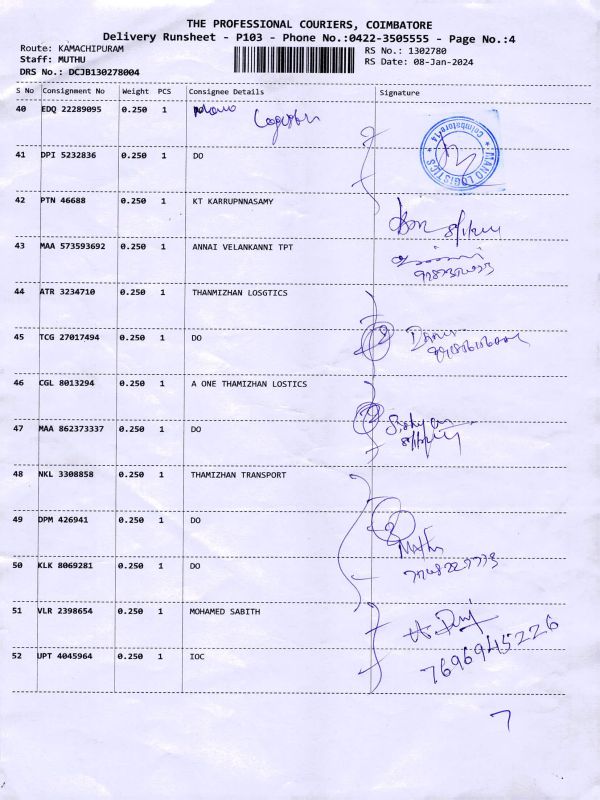 THE PROFESSIONAL COURIERS, COIMBATORE
Delivery Runsheet - P103 - Phone No.:0422-3505555 - Page No.:4
Route: KAMACHIPURAM
RS No.: 1302780
Staff: MUTHU
RS Date: 08-Jan-2024
DRS No.: DCJB130278004
S No Consignment No Weight PCS Consignee Details Signature
40 EDQ 22289095 0.250 1 Mano Logistics
41 DPI 5232836 0.250 1 DO
MANO LOGISTICS * Coimbatore-14 *
42 PTN 46688 0.250 1 KT KARRUPNNASAMY
43 MAA 573593692 0.250 1 ANNAI VELANKANNI TPT
44 ATR 3234710 0.250 1 THANMIZHAN LOSGTICS
45 TCG 27017494 0.250 1 DO
46 CGL 8013294 0.250 1 A ONE THAMIZHAN LOSTICS
47 MAA 862373337 0.250 1 DO
48 NKL 3308858 0.250 1 THAMIZHAN TRANSPORT
49 DPM 426941 0.250 1 DO
50 KLK 8069281 0.250 1 DO
51 VLR 2398654 0.250 1 MOHAMED SABITH
52 UPT 4045964 0.250 1 IOC
7696945226
7